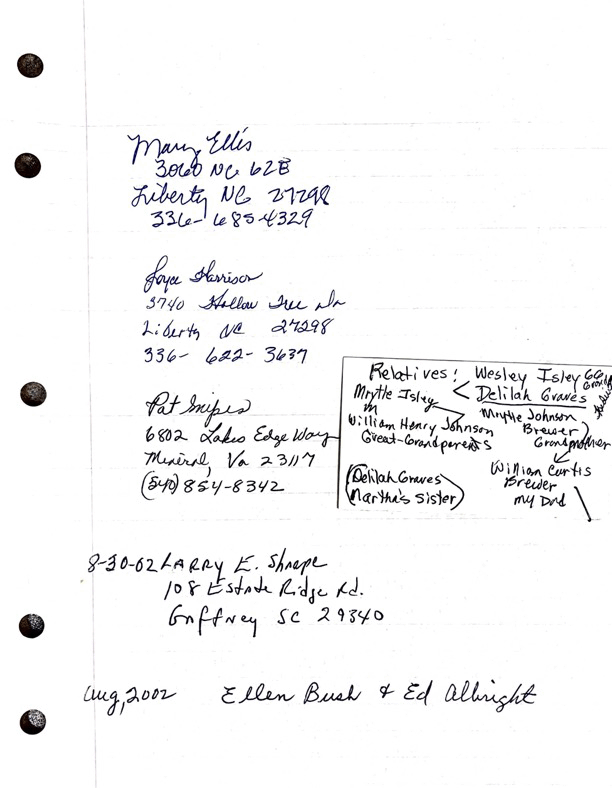 Mary Ellis
3060 NC 62E
Liberty NC 27298
336-685-4329
Joyce Harrison
3740 Hollow Tree Dr
Liberty NC 27298
336- 622- 3637
Pat Snipes
6802 Lakes Edge Way
Mineral, Va 23117
(540) 854-8342
Relatives: Wesley Isley GG
Grand
Delilah Graves
Mrytle Isley
m
William Henry Johnson
Great-Grandparents
Mrytle Johnson
Brewer
Grandmother
William Curtis
Brewer
my Dad
(Delilah Graves
Martha's Sister)
8-30-02 LARRY E. Sharpe
108 Estate Ridge Rd.
Gaffney SC 29340
Aug, 2002 Ellen Bush & Ed Albright